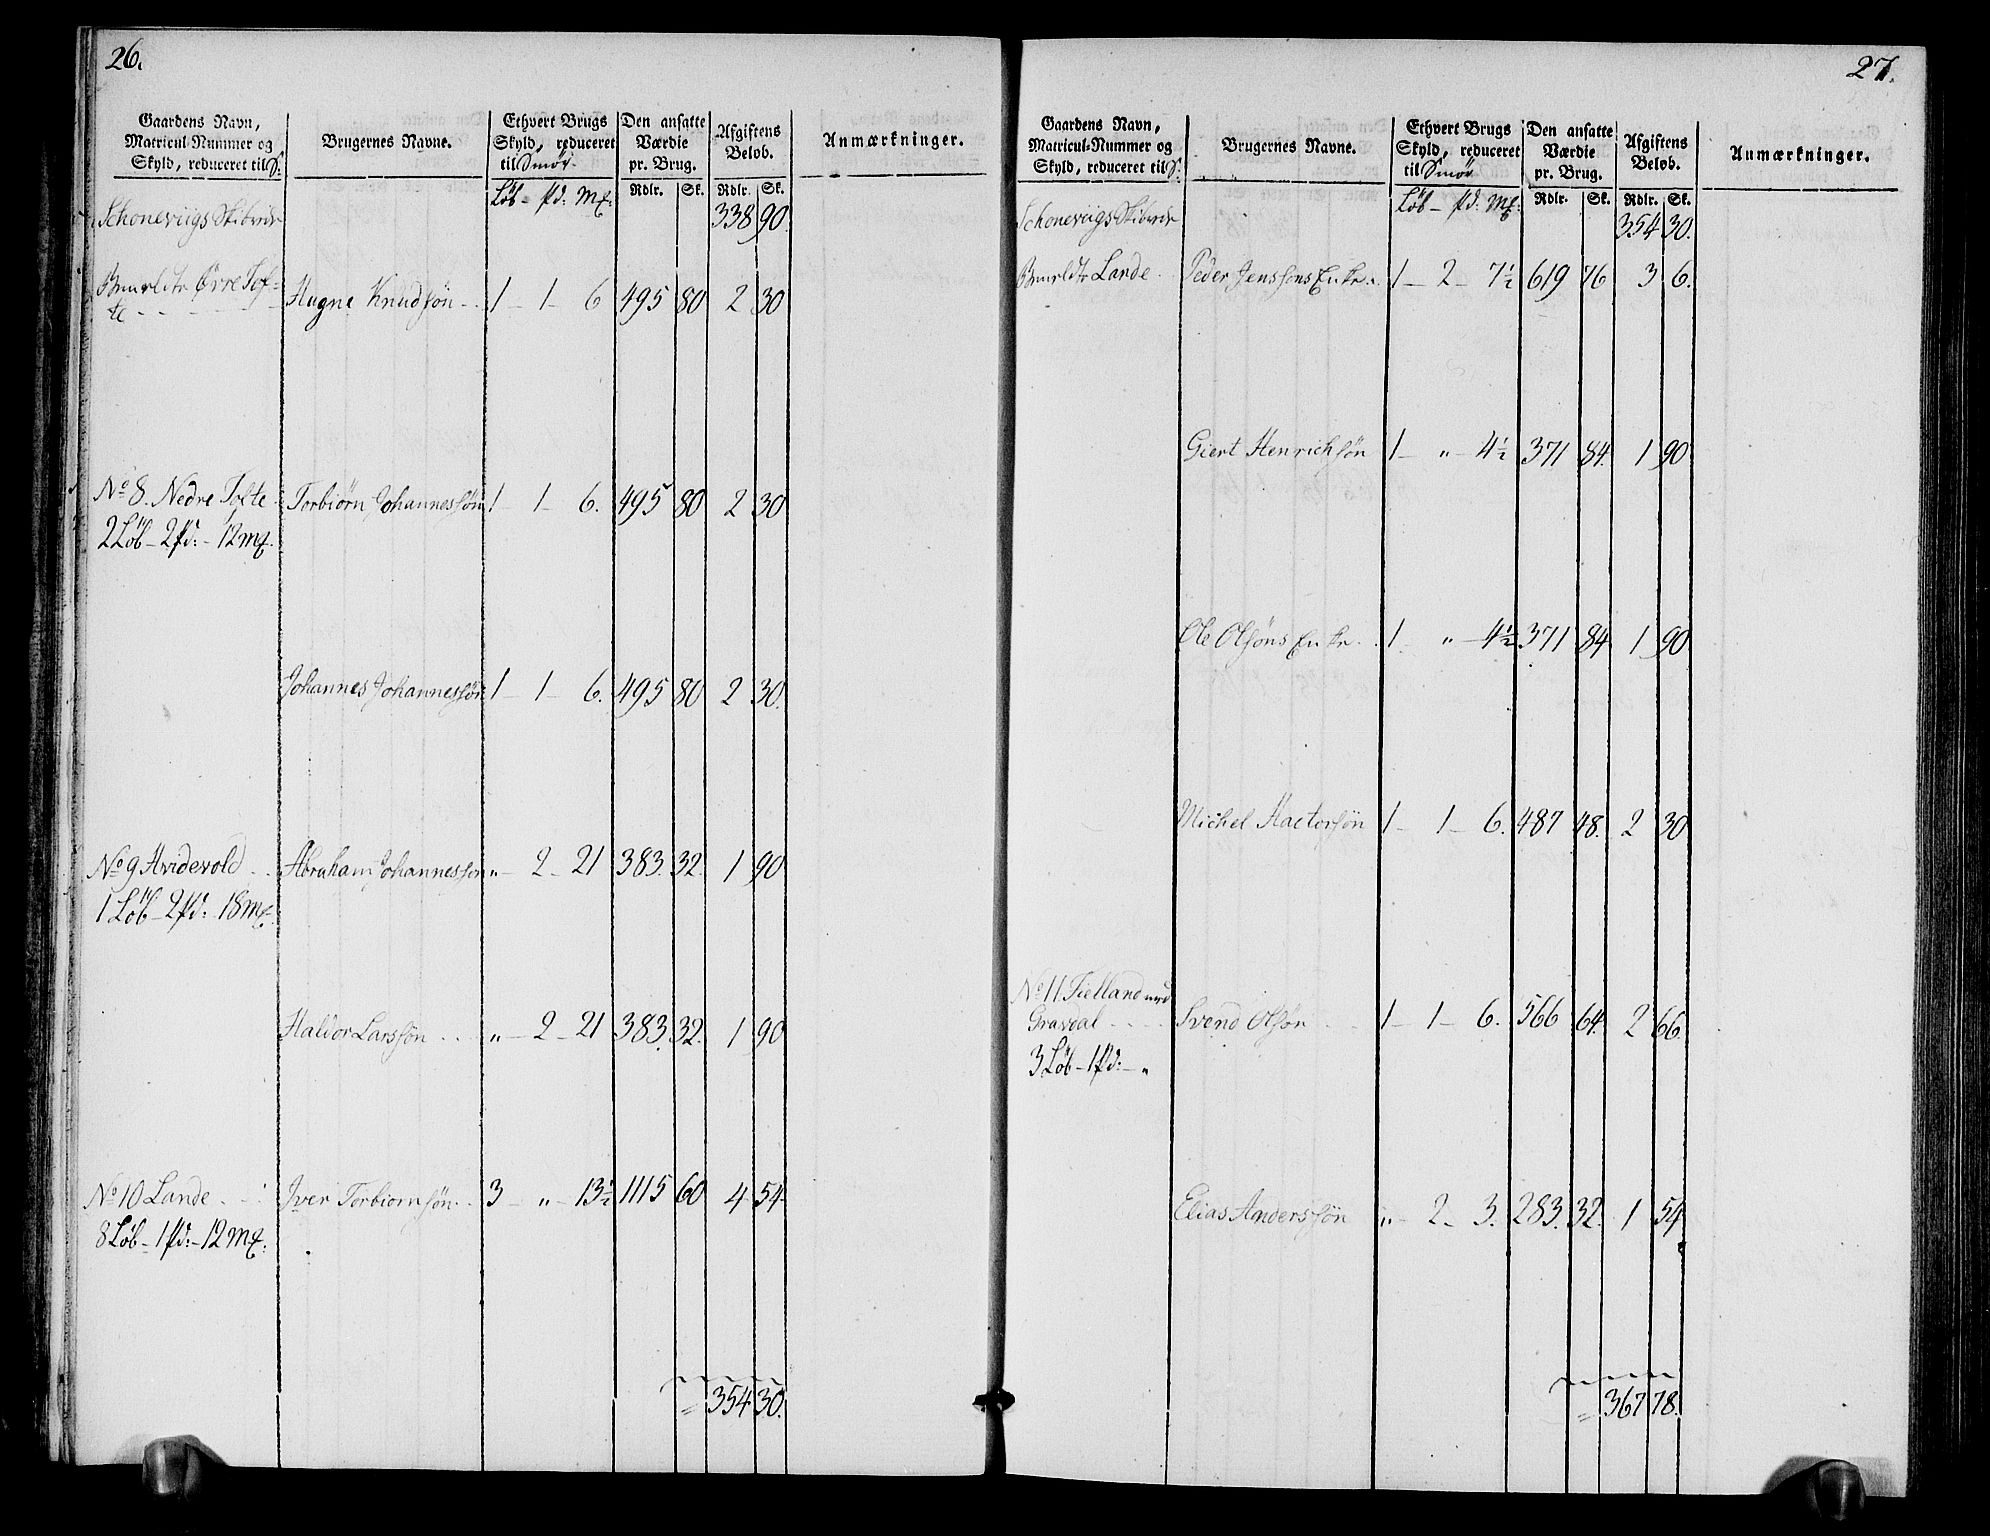 26.
Gaardens Navn, Matricul-Nummer og Skyld, reduceret til S:
Brugernes Navne.
Ethvert Brugs Skyld, reduceret til Smör.
Den ansatte Værdie pr. Brug.
Afgiftens Beløb.
Anmærkninger.
Löb - pd: Mk: Rdlr. Sk. Rdlr. Sk.
Schoneviigs Skibrede 338 90.
Øvre Tof-
te - - - Hagne Knudsön - - 1 - 1 - 6 495 80 2 30
No 8. Nedre Tofte Torbiörn Johannessön 1 - 1 - 6. 495 80 2 30
2 Löb - 2 pd: - 12 mk.
Johannes Johannessön 1 - 1 - 6. 495 80 2 30.
No 9 Hvidevold - - Abraham Johannessön „ - 2 - 21 383. 32. 1 90
1 Löb - 2 pd: - 18 mk
Haldor Larssön - - „ - 2 - 21 383. 32. 1 90
No 10 Lande - - Iver Torbiornsön - - 3 - „ - 13½ 1115 60 4 54
8 Löb - 1 pd: - 12 mk:
= 354 30.
27.
Gaardens Navn, Matricul-Nummer og Skyld, reduceret til S:
Brugernes Navne.
Ethvert Brugs Skyld, reduceret til Smör
Den ansatte Værdie pr. Brug.
Afgiftens Beløb.
Anmærkninger.
Löb - pd: mk: Rdlr. Sk. Rdlr. Sk.
Schoneviigs Skibrede 354 30.
Lande - Peder Jenssöns Enke - 1 - 2 - 7½ 619 76 3 6.
Giert Henrichsön 1 - „ - 4½ 371 84. 1 90
Ole Olsöns Enke - 1 - „ - 4½ 371 84 1 90
Michel Hactorsön 1 - 1 - 6. 487 48. 2 30
No 11 Fielland med
Gravdal - - - Svend Olsön - - 1 - 1 - 6. 566 64. 2 66.
3 Löb - 1 pd: - „
Elias Anderssön „ - 2 - 3. 283. 32. 1 54
= 367 78.